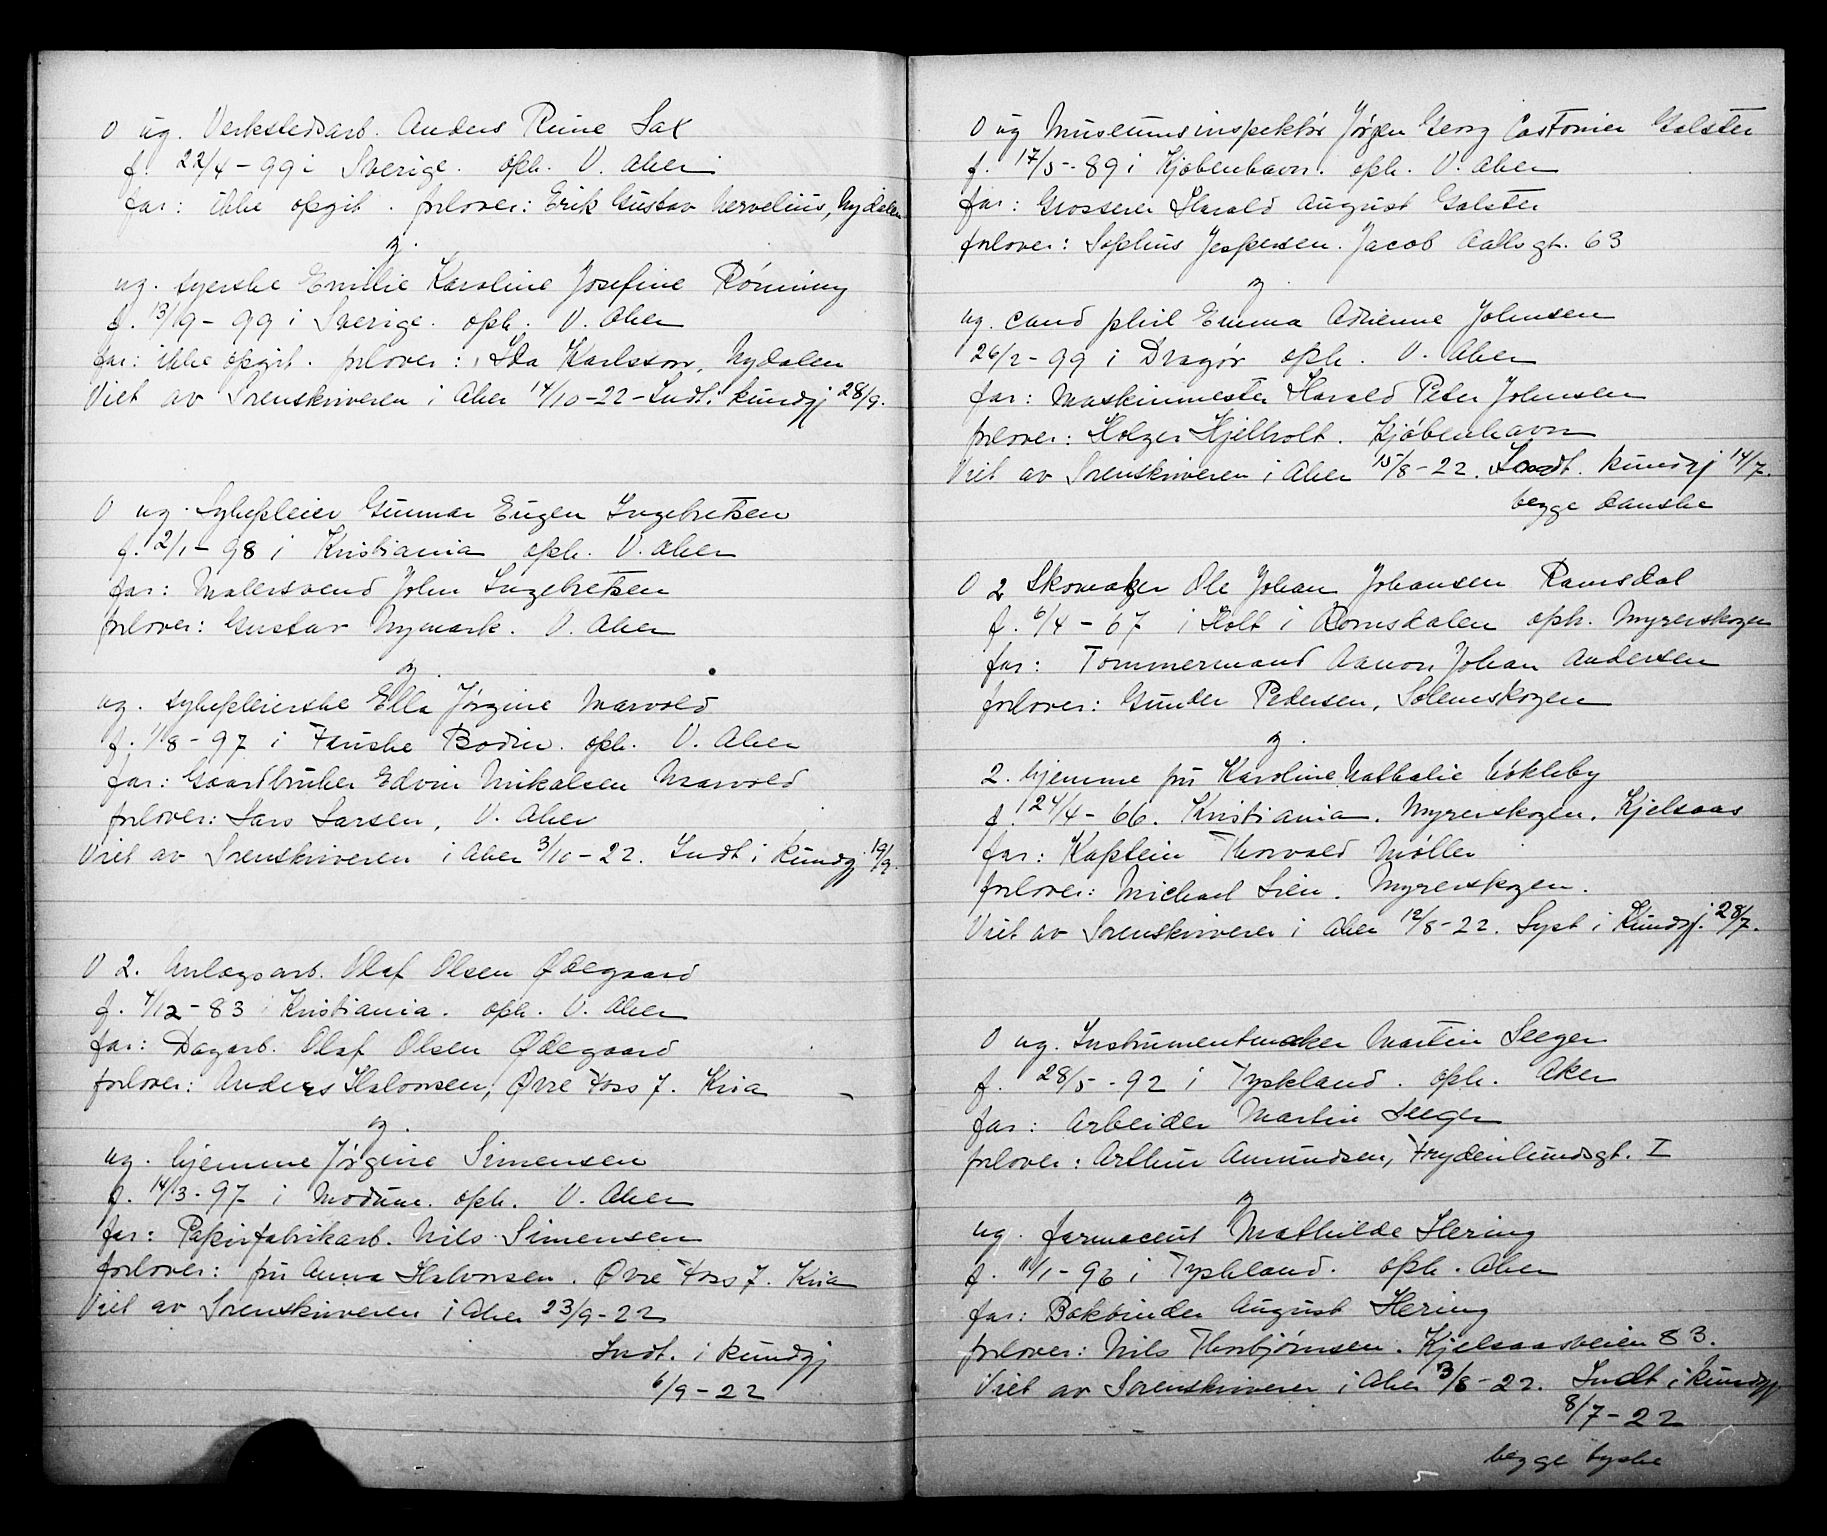 O ug. Verkstedsarb. Anders Rune Sax
f. 22/4 - 99 i Sverige. oph. V. Aker
far: ikke opgit. forlover: Erik Gustav Nervelius, Nydalen
og.
ug. syerske Emilie Karoline Josefine Rönning
f. 13/9 - 99 i Sverige. oph. V. Aker
far: ikke opgit. forlover: Ida Karlsson, Nydalen
Viet av Sorenskriveren i Aker 14/10-22 - Indt. kundgj 28/9.
O ug. Sykepleier Gunnar Eugen Ingebretsen
f. 2/1 - 98 i Kristiania oph. V. Aker
far: Malersvend John Ingebretsen
forlover: Gustav Nymark. V. Aker
og.
ug. sykepleierske Ella Jørgine Marvold
f. 11/8 - 97 i Fauske Bodin. oph. V. Aker
far: Gaardbruker Edvin Mikalsen Marvold
forlover: Lars Larsen, V. Aker
Viet av Sorenskriveren i Aker 3/10-22. Indt i kundgj 19/9.
O 2. Anlægsarb. Olaf Olsen Ødegaard
f. 4/12 - 83 i Kristiania. oph. V. Aker
far: Dagarb. Olaf Olsen Ødegaard
forlover: Anders Halvorsen, Øvre Foss 7. Kria
og.
ug. hjemme Jørgine Simensen
f. 14/3 - 97 i Modum. oph. V. Aker
far: Papirfabrikarb. Nils Simensen
forlover: fru Anna Halvorsen. Øvre Foss 7. Kria
Viet av Sorenskriveren i Aker 23/9-22
Indt. i kundgj
6/9-22
O ug Museumsinspektör Jörgen Georg Castonier Galster
f. 17/5 - 89 i Kjøbenhavn. oph. V. Aker
far: Grosserer Harald August Galster
forlover: Sophus Jespersen. Jacob Aallsgt. 63
og.
ug. cand phil Emma Adrienne Johnsen
26/2 - 99 i Dragör oph. V. Aker
far: Maskinmester Harald Peter Johnsen
forlover: Holger Hjelholt. Kjöbenhavn
Viet av Sorenskriveren i Aker 15/8-22. Indt. kundgj 14/7.
begge danske
O 2 Skomaker Ole Johan Johansen Ramsdal
f. 6/4 - 67 i Holt i Romsdalen oph. Myrerskogen
far: Tømmermand Aanon Johan Andersen
forlover: Gunder Pedersen, Solemskogen
og.
2. hjemme fru Karoline Nathalie Lökleby
f. 24/4 - 66. Kristiania. Myrerskogen. Kjelsaas
far: Kaptein Thorvald Möller
forlover: Michael Lien. Myrerskogen.
Viet av Sorenskriveren i Aker 12/8-22. Lyst i Kundgj. 28/7.
O ug. Instrumentmaker Martin Seeger
f. 28/5 - 92 i Tyskland. oph. Aker
far: Arbeider Martin Seeger
forlover: Arthur Amundsen, Frydenlundsgt. I
og
ug. farmaceut Mathilde Hering
f. 11/1 - 96 i Tyskland. oph. Aker
far: Bokbinder August Hering
forlover: Nils Thorbjörnsen. Kjelsaasveien 83.
Viet av Sorenskriveren i Aker 3/8-22. Indt i kundgj
8/7-22
begge tyske